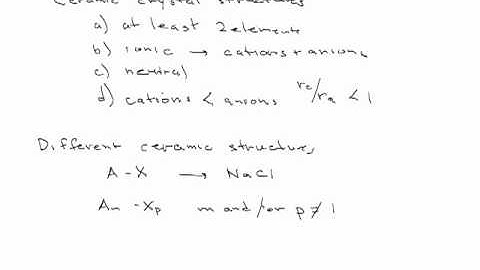 Ceramic crystal structures
a) at least 2 elements
b) ionic → cations + anions
c) neutral
d) cations < anions rc/ra < 1
Different ceramic structures
A-X → NaCl
Am-Xp m and/or p ≠ 1